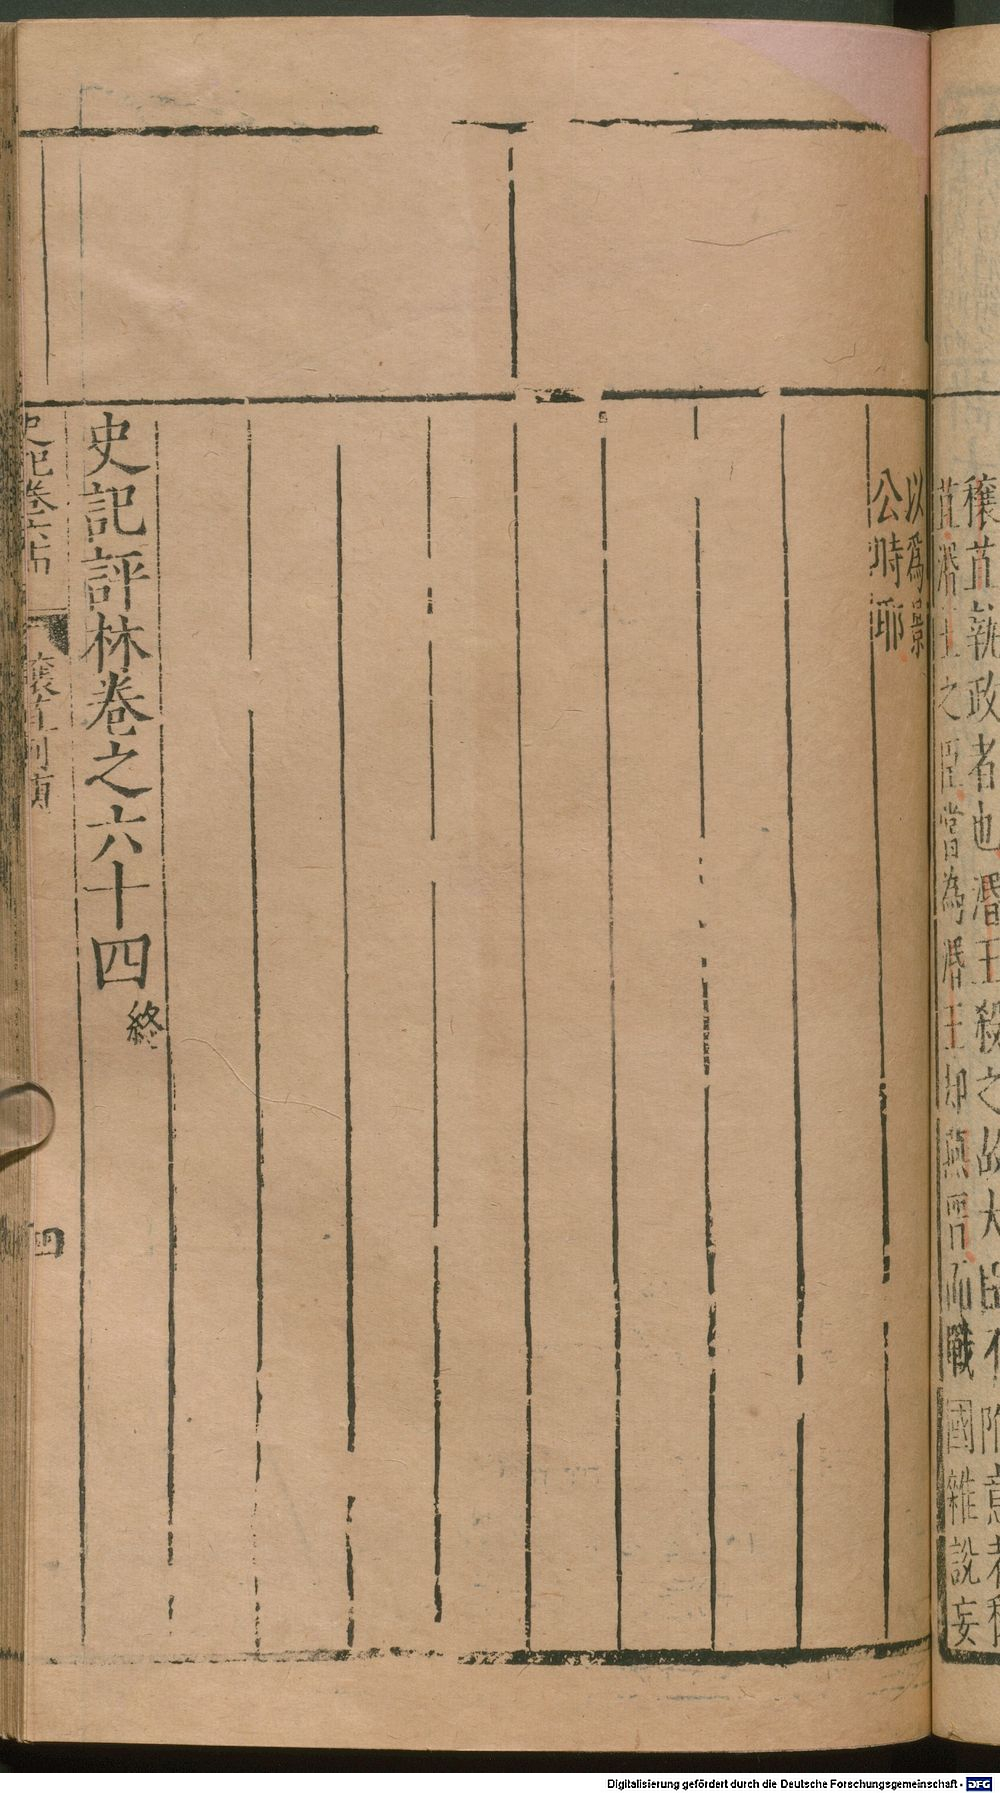 穰苴執政者也湣王殺之故大臣不附意者穰
苴湣王之臣嘗為湣王却燕晉而戰國雜說妄
以爲景
公時耶
史記評林卷之六十四終
史記卷六十四
穰苴列傳
四
Digitalisierung gefördert durch die Deutsche Forschungsgemeinschaft - DFG